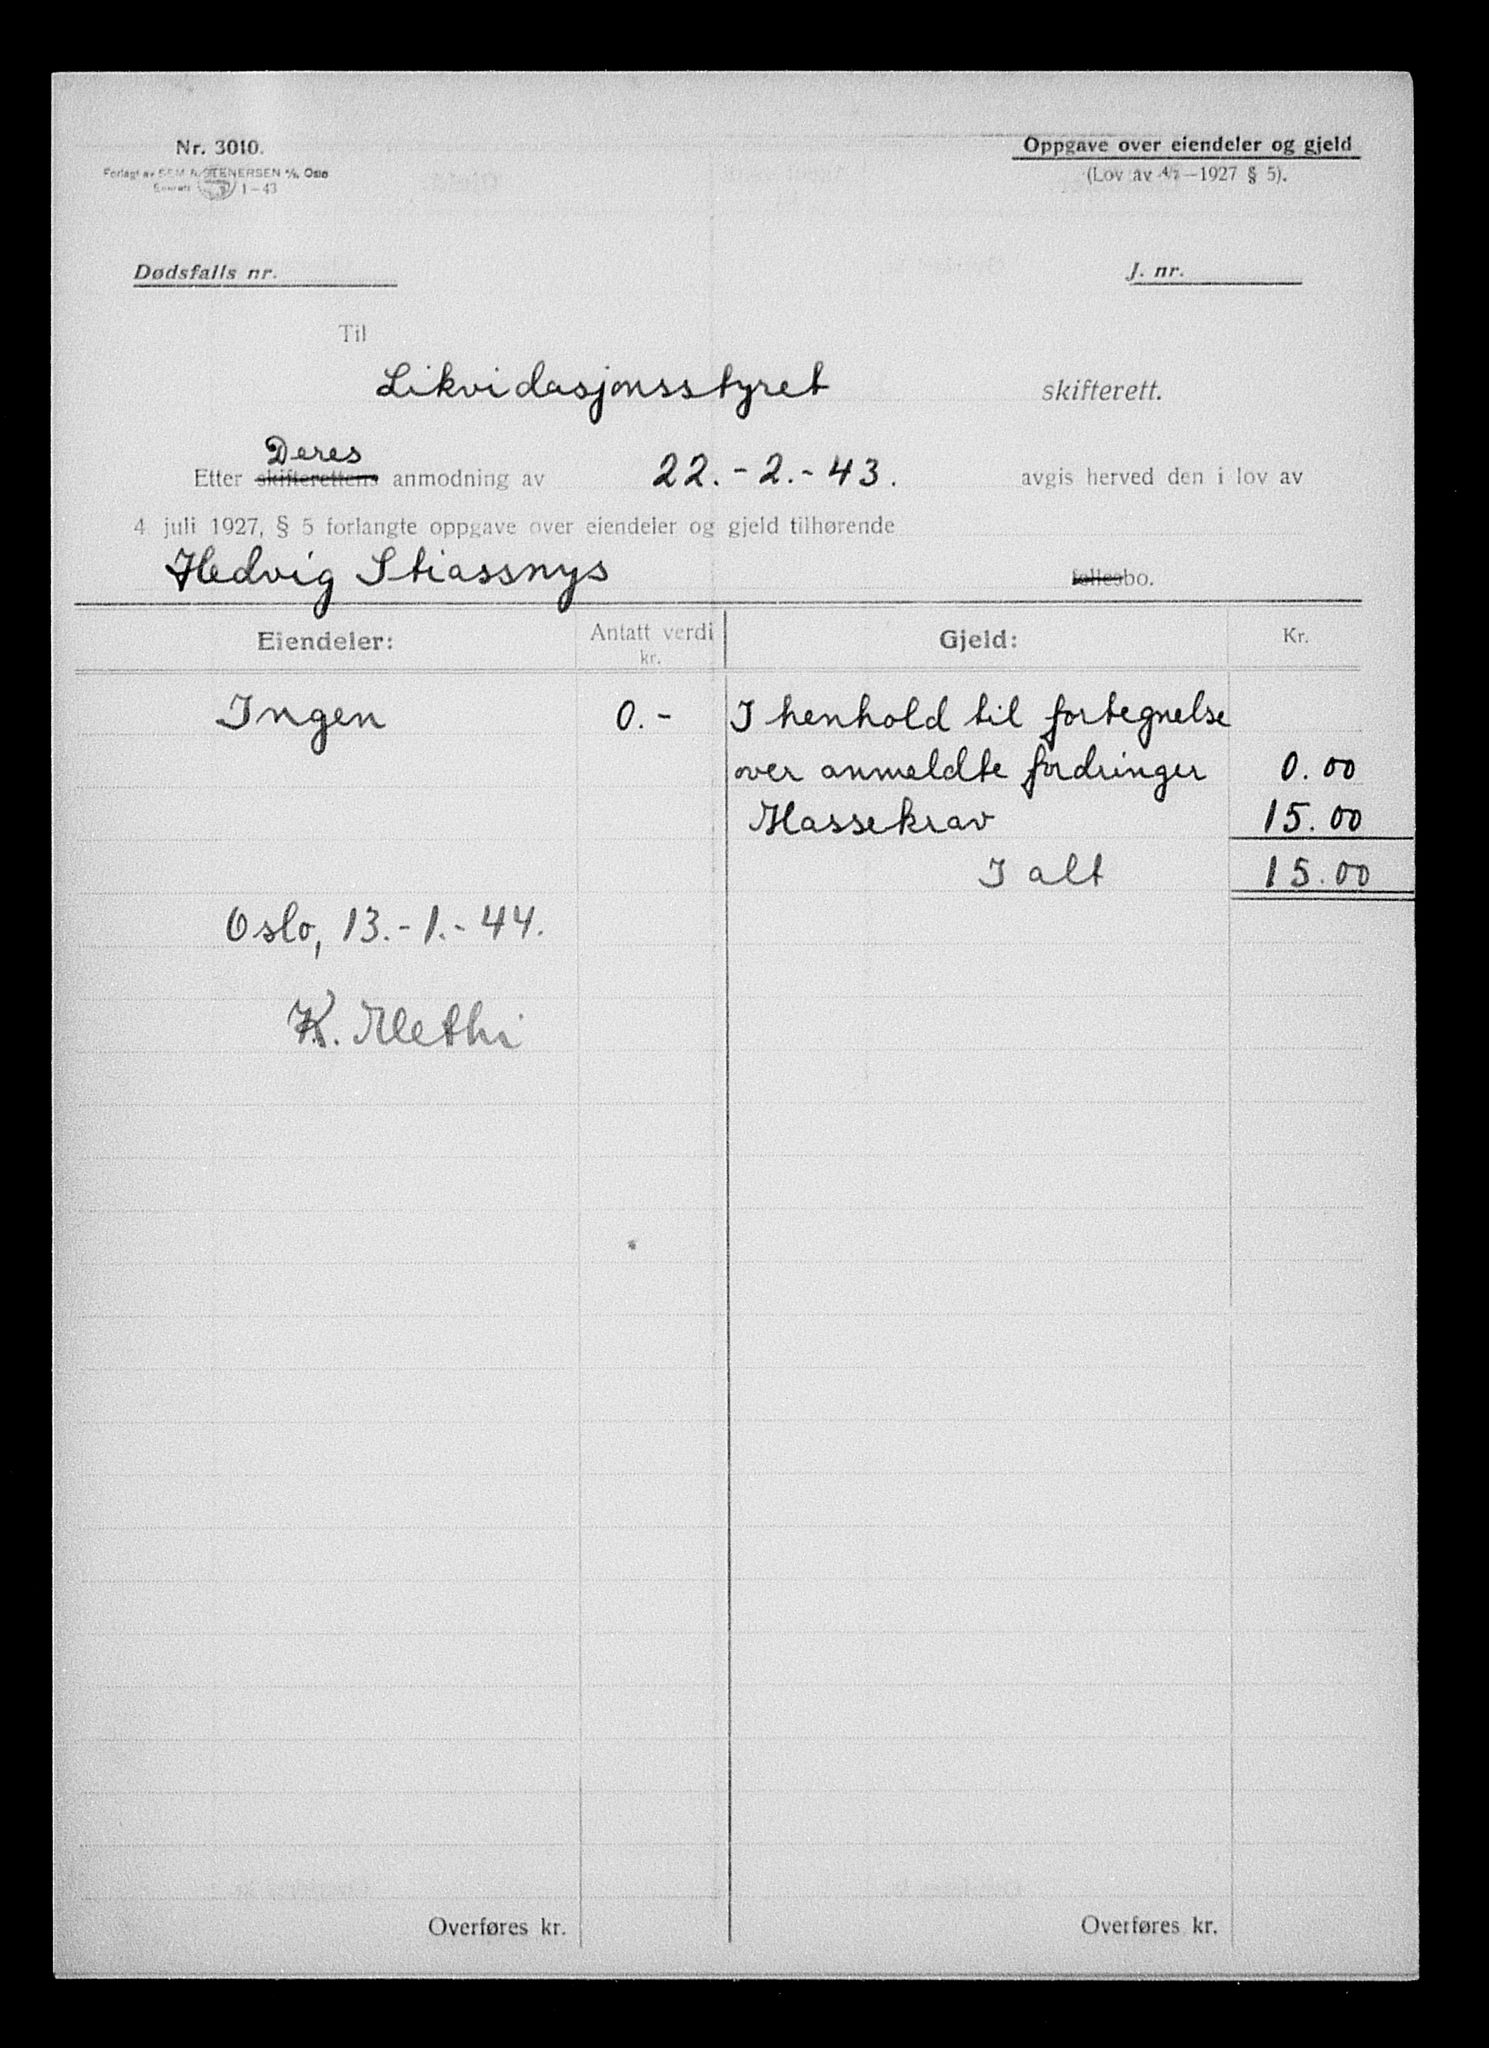 Nr. 3010.
Forlagt av SEM & STENERSEN A/S, Oslo
1-43
Oppgave over eiendeler og gjeld
(Lov av 4/7-1927 § 5).
Dødsfalls nr.
J. nr.
Til
Likvidasjonsstyret skifterett.
Deres
Etter skifterettens anmodning av 22.-2.-43. avgis herved den i lov av
4 juli 1927, § 5 forlangte oppgave over eiendeler og gjeld tilhørende
Hedvig Stiassnys fellesbo.
Eiendeler: Antatt verdi kr. Gjeld: Kr.
Ingen 0.- I henhold til fortegnelse
over anmeldte fordringer 0.00
Massekrav 15.00
I alt 15.00
Oslo, 13.-1.-44.
K. Methi
Overføres kr. Overføres kr.